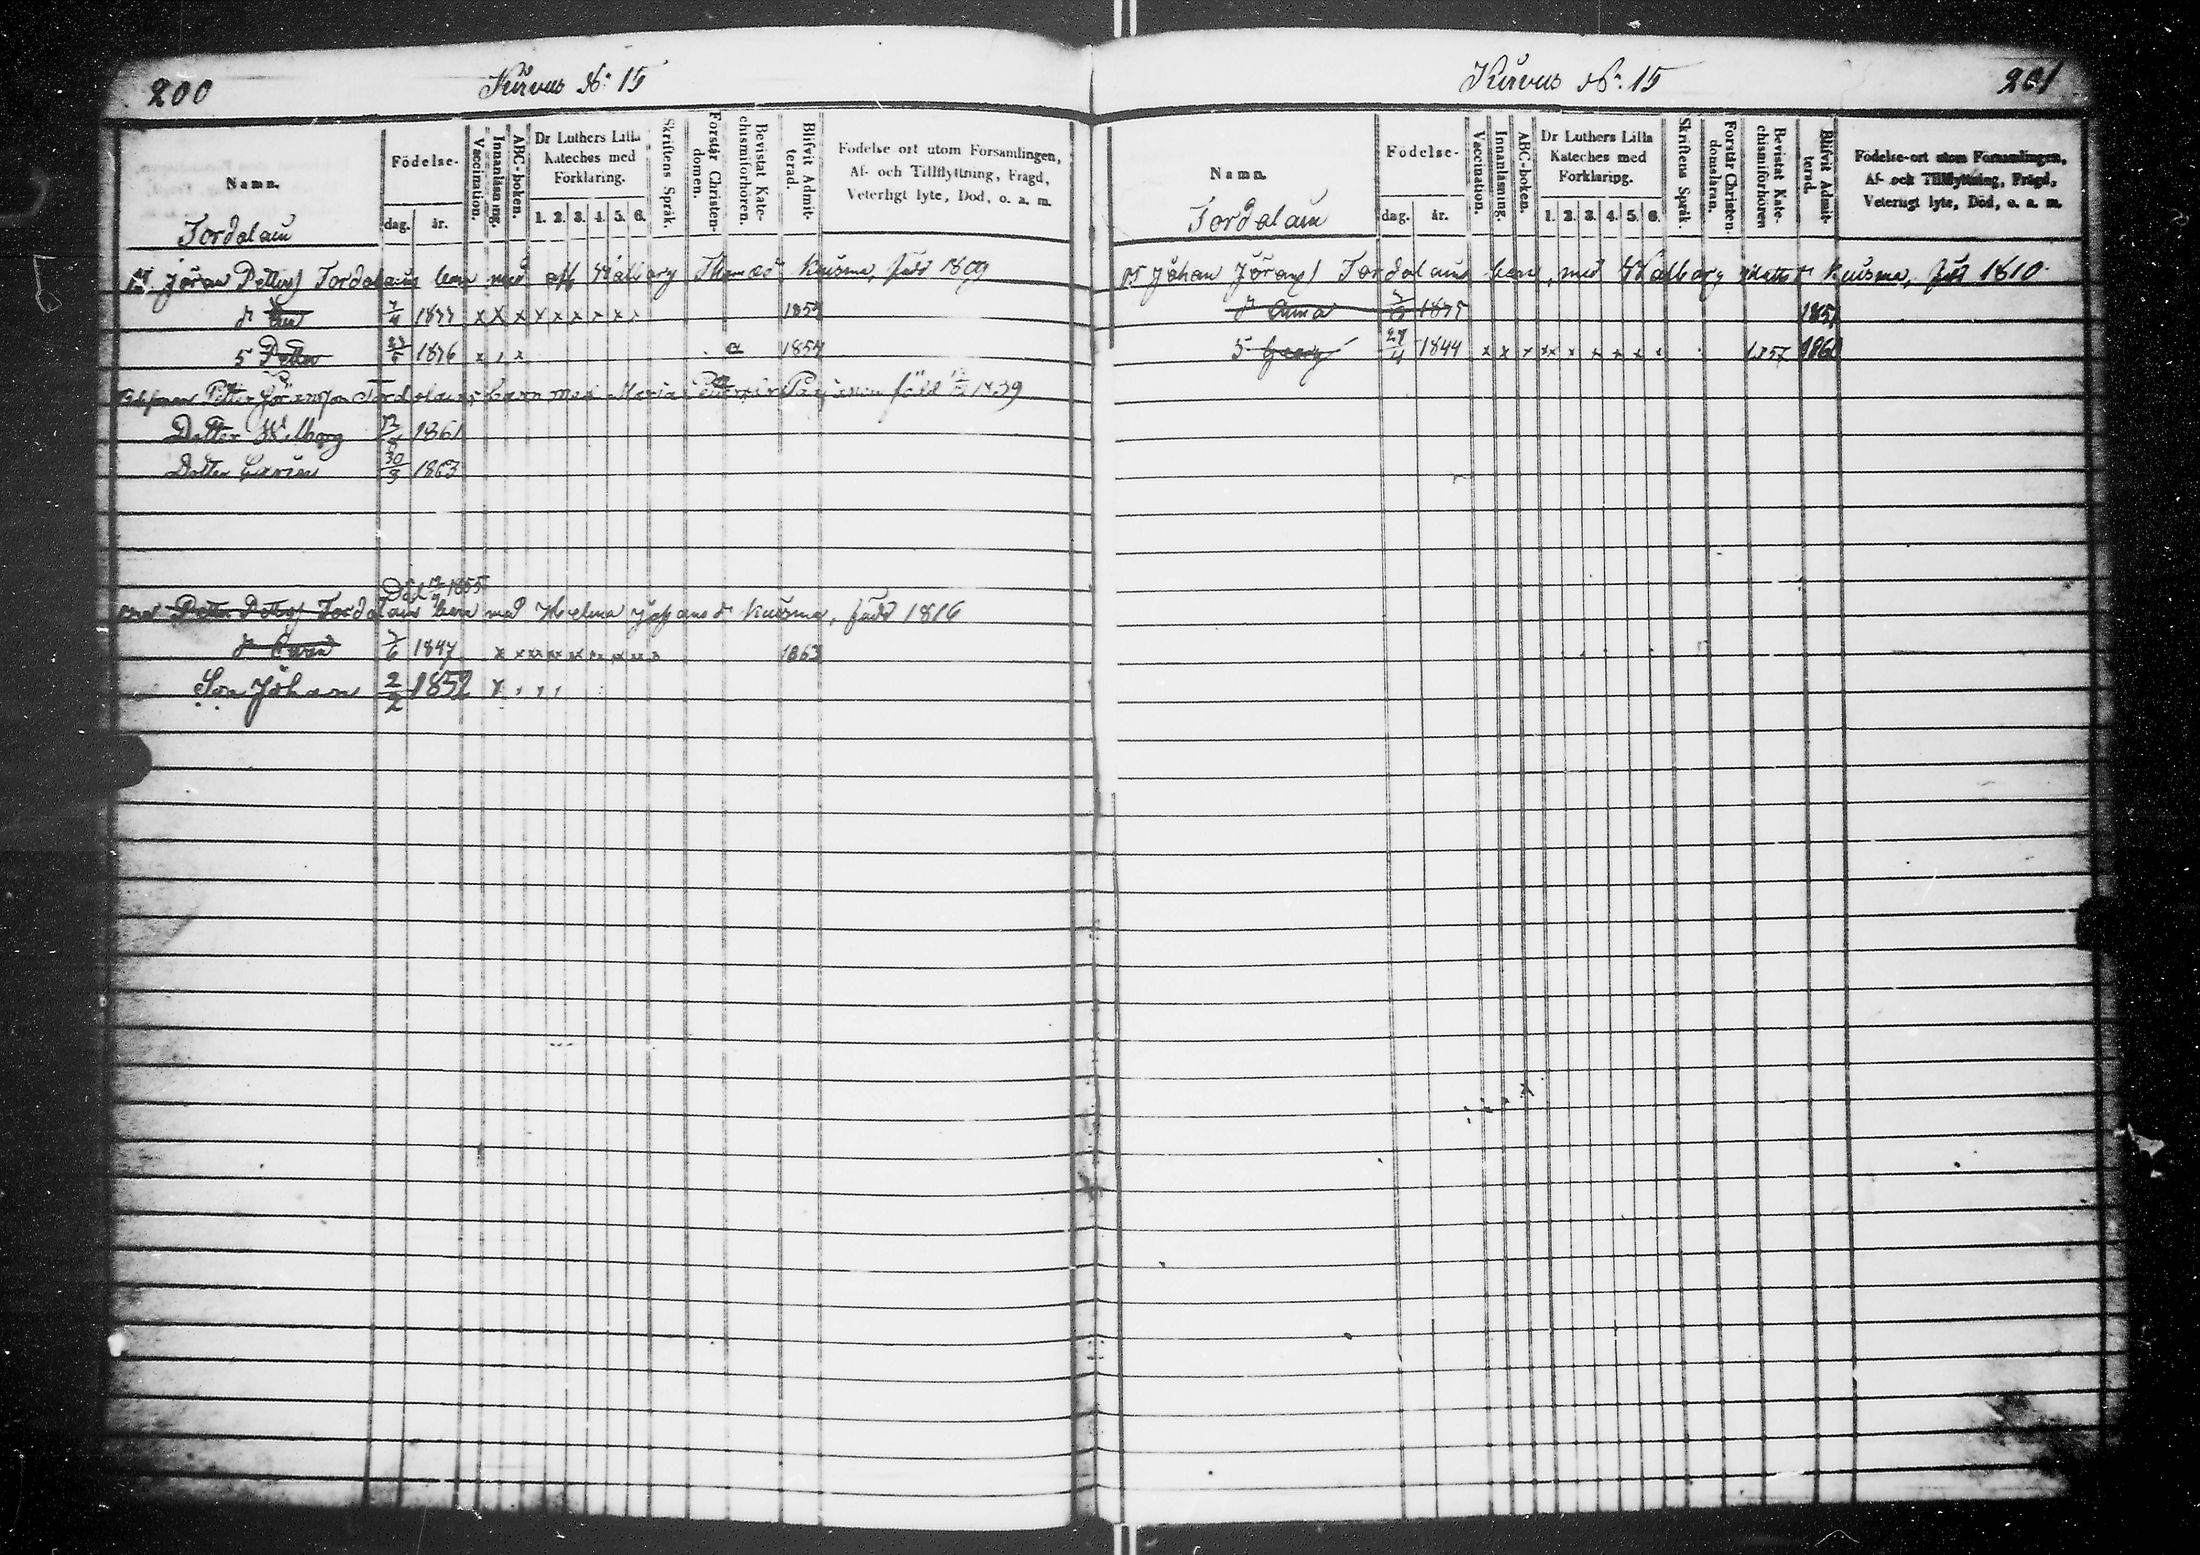 200
Kårvus No: 15
Namn.
Födelse-
dag. år.
Vaccination.
Innanläsning.
ABC-boken.
Dr Luthers Lilla Kateches med Förklaring.
1. 2. 3. 4. 5. 6.
Skriftens Språk.
Förstår Christendomen.
Bevistat Katechismiförhören.
Blifvit Admitterad.
Födelse-ort utom Församlingen,
Af- och Tillflyttning, Frägd,
Veterligt lyte, Död, o. a. m.
Tordolain
Jöran Petters) Tordolains barn med Walborg Thomæd: Kuusma, född 1809
7/4 1833 x x x x x x x x x 1853
S Petter 1836 x x x 1854
Petter Jöransson Tordolains barn med Maria född 1839
Dotter Walborg 1861
Dotter Carin 30/3 1863
Död 1855
Petter Petters) Tordolain barn med Helena Johansdr Kuusma, född 1816
dr Carin 7/6 1847 1863
Son Johan 2/2 1852
201
Kårvus No: 15
Namn.
Födelse-
dag. år.
Vaccination.
Innanläsning.
ABC-boken.
Dr Luthers Lilla Kateches med Förklaring.
1. 2. 3. 4. 5. 6.
Skriftens Språk.
Förstår Christendomsläran.
Bevistat Katechismiförhören
Blifvit Admitterad.
Födelse-ort utom Församlingen,
Af- och Tillflyttning, Frägd,
Veterligt lyte, Död, o. a. m.
Tordolain
Johan Jörans) Tordolains barn, med Walborg Kuusma, född 1810
dr Anna 1835 1851
S Georg 27/4 1844 x x x x x x x x x 1857 1860